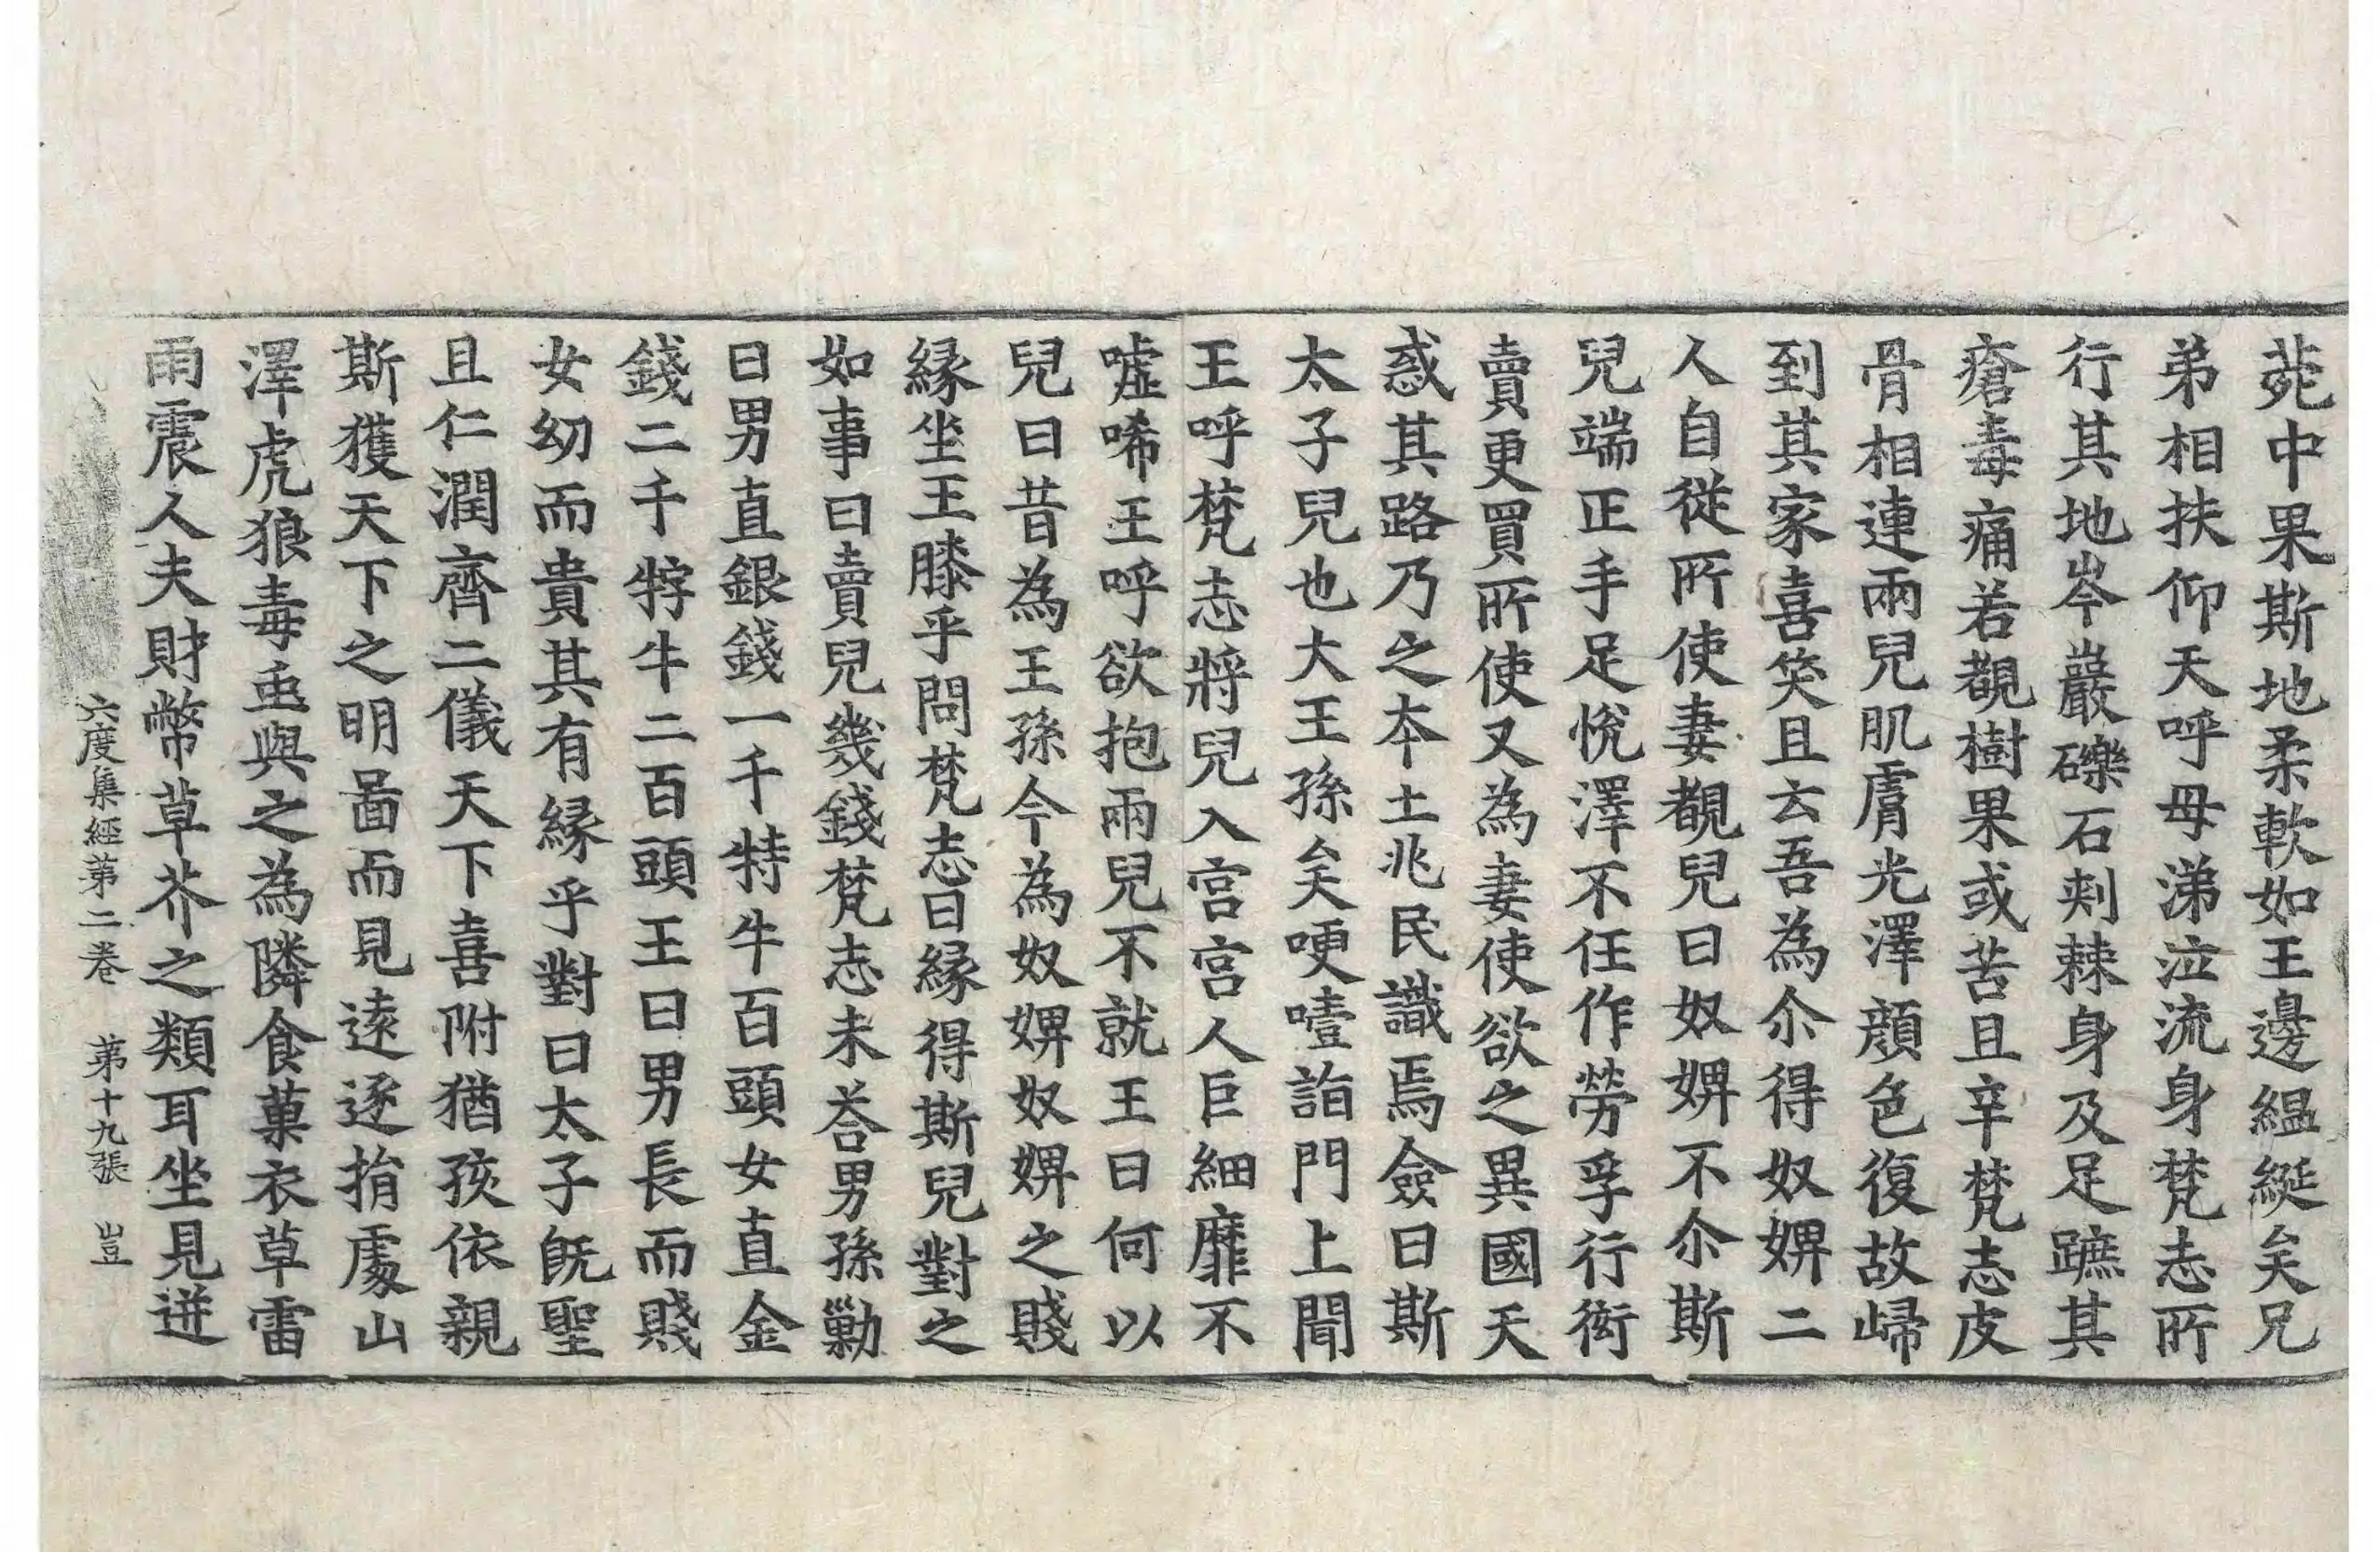 蓏中果斯地柔軟如王邊縕綖矣兄
弟相扶仰天呼母涕泣流身梵志所
行其地岑巖礫石刺棘身及足蹠其
瘡毒痛若覩樹果或苦且辛梵志皮
骨相連兩兒肌膚光澤顔色復故歸
到其家喜笑且云吾為尒得奴婢二
人自從所使妻覩兒曰奴婢不尒斯
兒端正手足悅澤不任作勞孚行衒
賣更買所使又為妻使欲之異國天
惑其路乃之本土兆民識焉僉曰斯
太子兒也大王孫矣哽噎詣門上聞
王呼梵志將兒入宮宮人巨細靡不
噓唏王呼欲抱兩兒不就王曰何以
兒曰昔為王孫今為奴婢奴婢之賤
緣坐王膝乎問梵志曰緣得斯兒對之
如事曰賣兒幾錢梵志未荅男孫勦
曰男直銀錢一千特牛百頭女直金
錢二千牸牛二百頭王曰男長而賤
女幼而貴其有緣乎對曰太子旣聖
且仁潤齊二儀天下喜附猶孩依親
斯獲天下之明啚而見逺逐捐處山
澤虎狼毒䖝與之為隣食菓衣草雷
雨震人夫財幣草芥之類耳坐見迸
六度集經第二卷　第十九張　豈